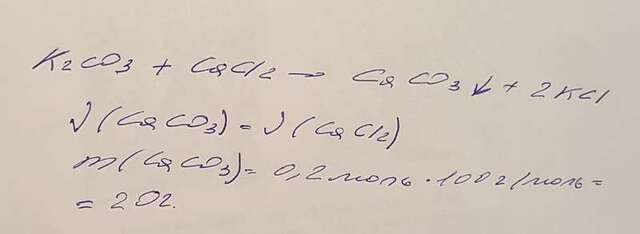 K2CO3 + CaCl2 → CaCO3↓ + 2KCl
ν(CaCO3) = ν(CaCl2)
m(CaCO3) = 0,2 моль · 100 г/моль =
= 20г.